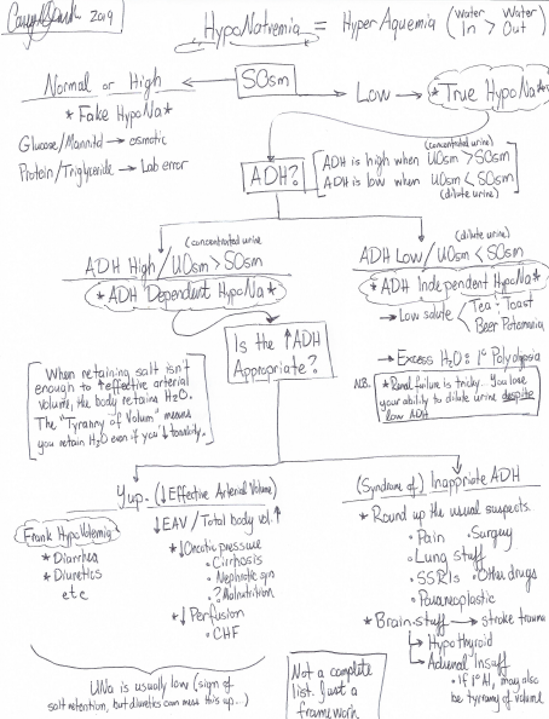 2019
HypoNatremia = Hyper Aquemia (Water In > Water Out)
Normal or High
SOsm
Low → *True HypoNa*
*Fake HypoNa*
Glucose/Mannitol → osmotic
Protein/Triglyceride → Lab error
ADH?
(concentrated urine)
ADH is high when UOsm > SOsm
ADH is low when UOsm < SOsm
(dilute urine)
(concentrated urine
ADH High/UOsm > SOsm
*ADH Dependent HypoNa*
(dilute urine)
ADH Low/UOsm < SOsm
*ADH Independent HypoNa*
→ Low solute < Tea & Toast
Beer Potomania
→ Excess H2O: 1° Polydipsia
N.B. *Renal failure is tricky. You lose
your ability to dilute urine despite
low ADH
Is the ↑ADH
Appropriate?
When retaining salt isn't
enough to ↑effective arterial
volume, the body retains H2O.
The "Tyranny of Volum" means
you retain H2O even if you ↓tonicity.
Yup. (↓Effective Arterial Volume)
Frank HypoVolemia
* Diarrhea
* Diuretics
etc
↓EAV/Total body vol.↑
*↓Oncotic pressure
• Cirrhosis
• Nephrotic syn
• ?Malnutrition
*↓Perfusion
• CHF
UNa is usually low (sign of
salt retention, but diuretics can mess this up...)
(Syndrome of) Inappriate ADH
* Round up the usual suspects
• Pain • Surgery
• Lung stuff
• SSRIs • Other drugs
• Paraneoplastic
* Brain stuff → stroke trauma
↳ Hypothyroid
↳ Adrenal Insuff
• If 1° AI, may also
be tyranny of volume
Not a complete
list. Just a
framework